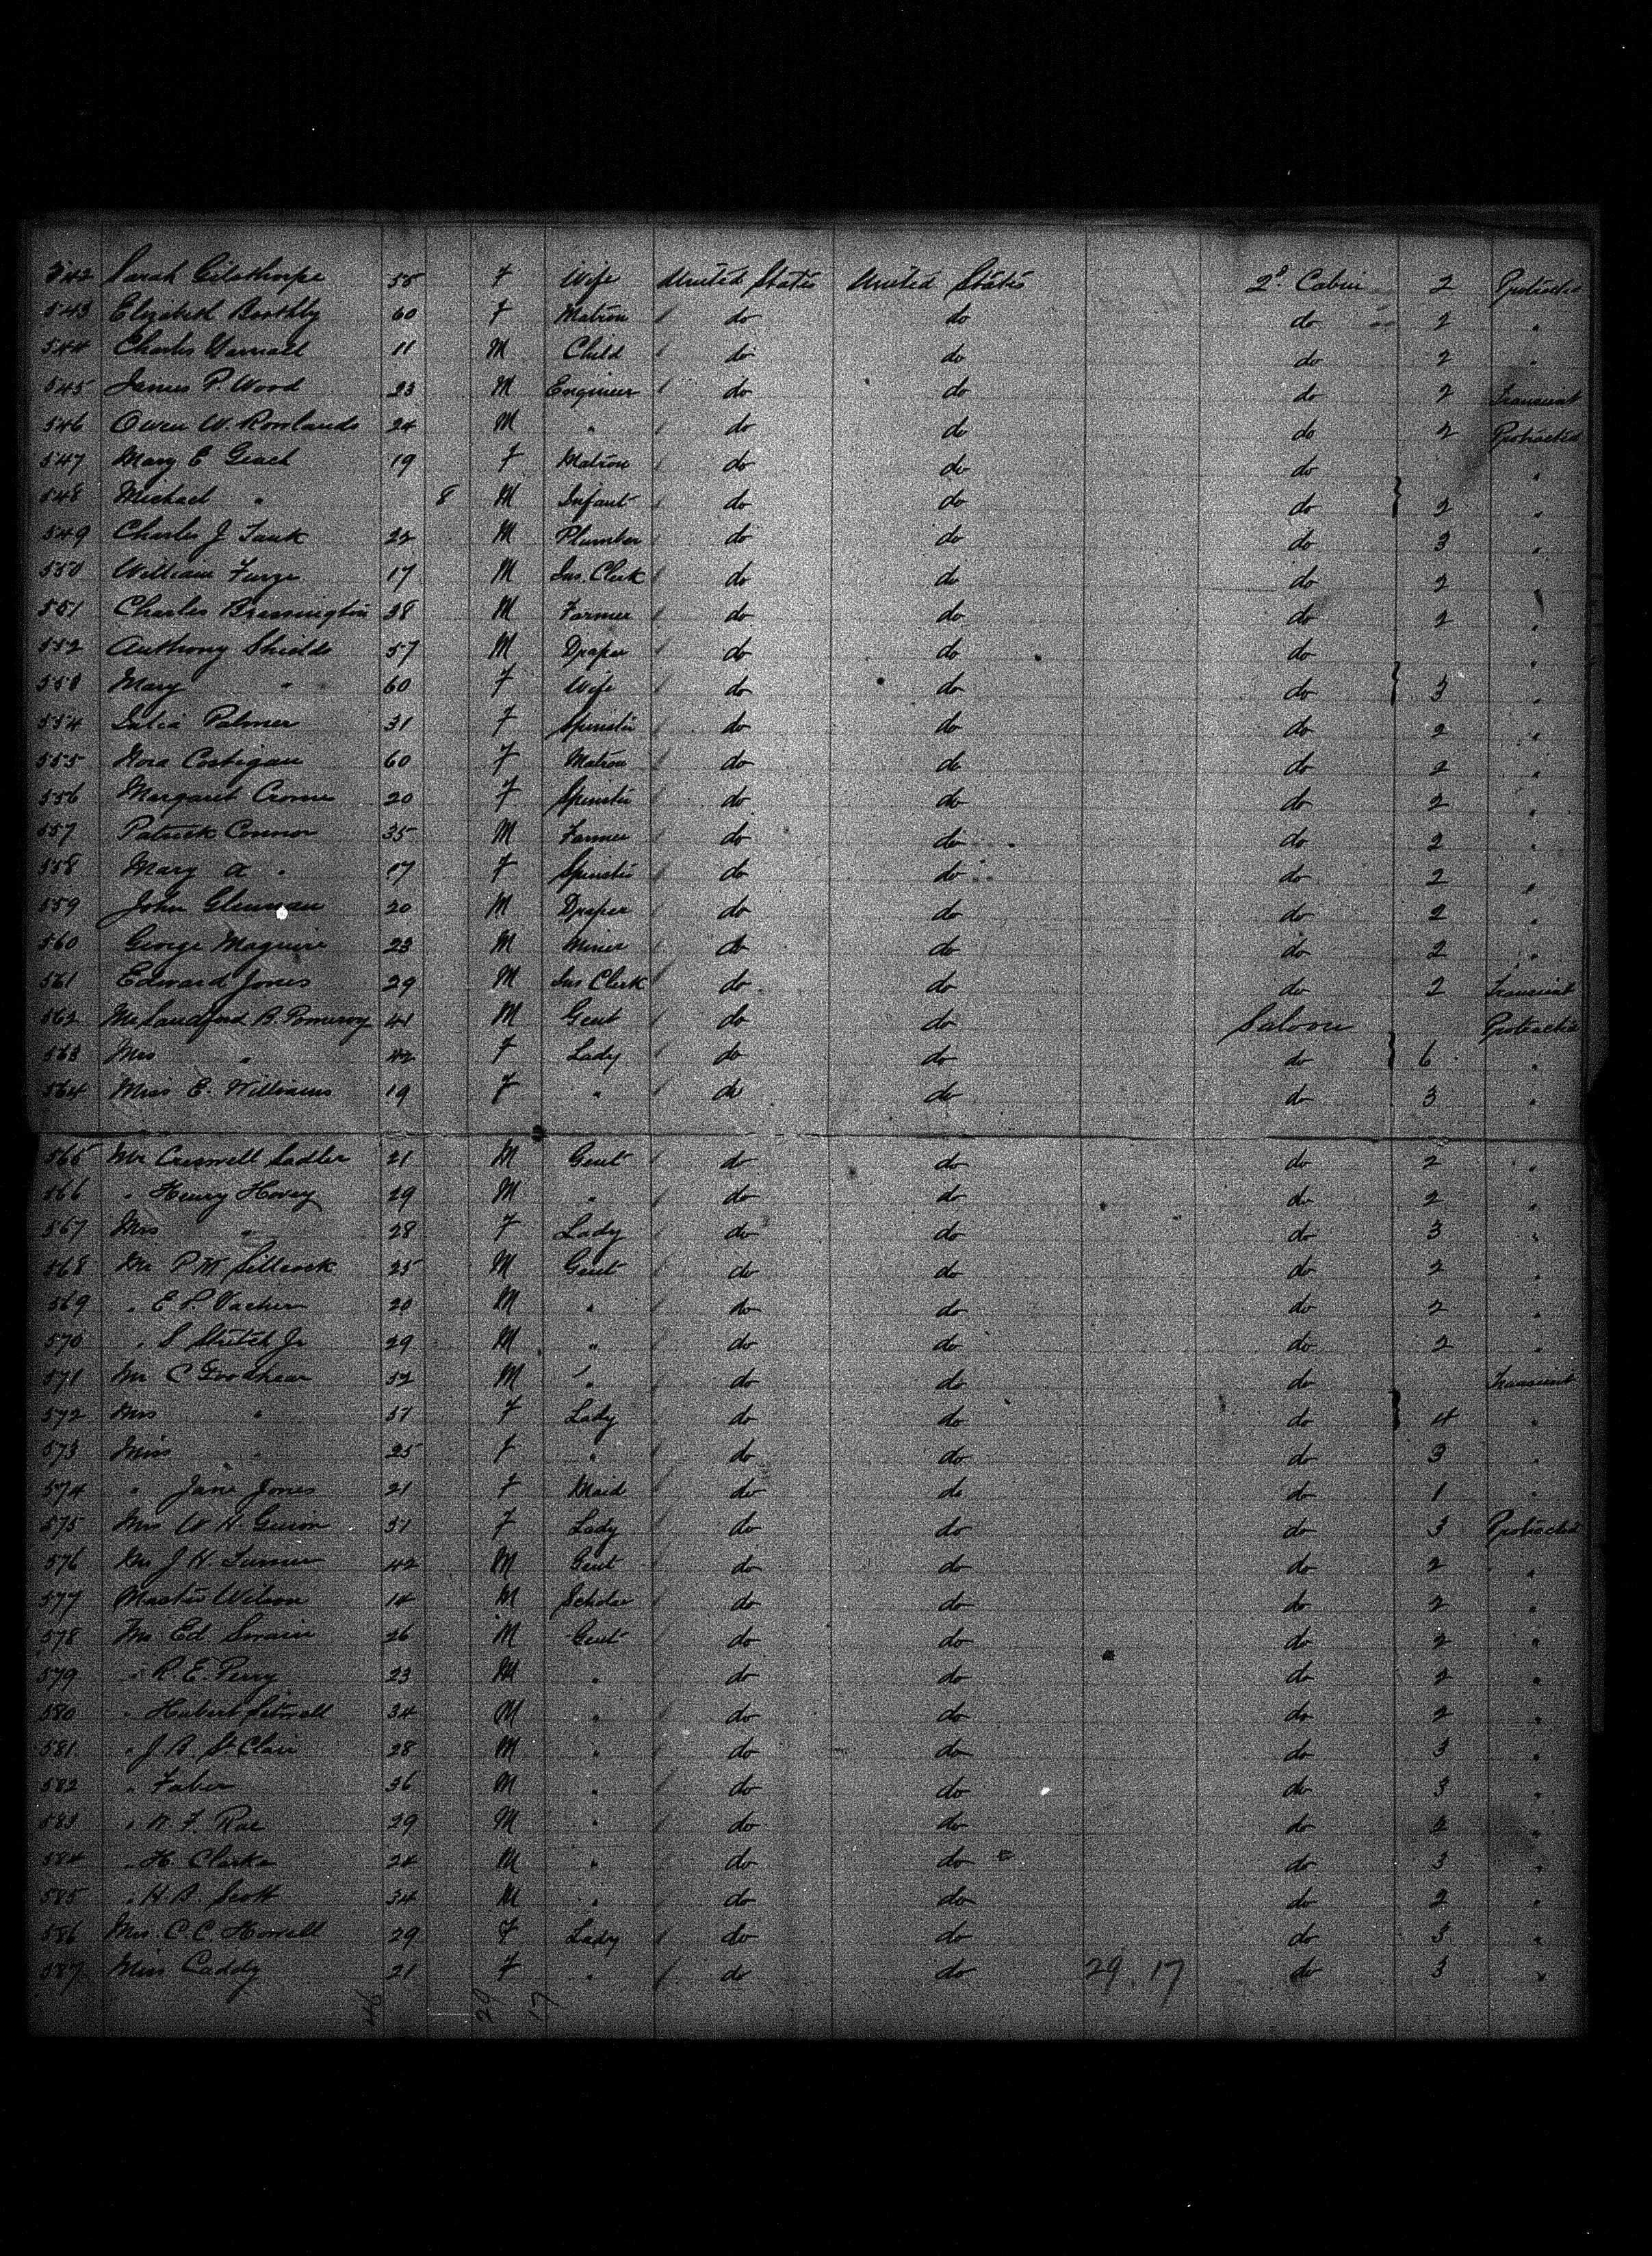 542 Sarah Gilsthorpe 58 F Wife United States United States 2d Cabin 2 Protracted
543 Elizabeth Boothby 60 F Matron do do do 2 "
544 Charles 11 M Child do do do 2 "
545 James P. Wood 23 M Engineer do do do 2 Transient
546 Owen W. Rowlands 24 M " do do do 2 Protracted
547 Mary E Geach 19 F Matron do do do "
548 Michael " 8 M Infant do do do } 2 "
549 Charles J. 22 M Plumber do do do 3 "
550 William Furze 17 M Ins. Clerk do do do 2 "
551 Charles Bressington 38 M Farmer do do do 2 "
552 Anthony Shields 57 M Draper do do do "
553 Mary " 60 F Wife do do do } 3 "
554 Palmer 31 F Spinster do do do 2 "
555 Nora Costigan 60 F Matron do do do 2 "
556 Margaret 20 F Spinster do do do 2 "
557 Patrick Connor 35 M Farmer do do do 2 "
558 Mary A " 17 F Spinster do do do 2 "
559 John Glennan 20 M Draper do do do 2 "
560 George Maguire 23 M Miner do do do 2 "
561 Edward Jones 29 M Ins Clerk do do do 2 Transient
562 Mr Sandford B. Pomeroy 41 M Gent do do Saloon Protracted
563 Mrs " 42 F Lady do do do } 6 "
564 Miss E. Williams 19 F " do do do 3 "
565 Mr Creswell Sadler 21 M Gent do do do 2 "
566 " Henry Hovey 29 M " do do do 2 "
567 Mrs " 28 F Lady do do do 3 "
568 Mr P M Sillcock 25 M Gent do do do 2 "
569 " E P. Vacher 20 M " do do do 2 "
570 " S Stretch Jr 29 M " do do do 2 "
571 Mr C Goodhear 52 M " do do do Transient
572 Mrs " 51 F Lady do do do } 4 "
573 Miss " 25 F " do do do 3 "
574 " Jane Jones 21 F Maid do do do 1 "
575 Mrs W H. Guion 51 F Lady do do do 3 Protracted
576 Mr J H. Turner 42 M Gent do do do 2 "
577 Master Wilson 14 M Scholar do do do 2 "
578 Mr Ed. Swain 26 M Gent do do do 2 "
579 " R. E. Perry 23 M " do do do 2 "
580 " Hubert Sitwell 34 M " do do do 2 "
581 " J. A. St. Clair 28 M " do do do 3 "
582 " Faber 36 M " do do do 3 "
583 " W. F. Rae 29 M " do do do 2 "
584 " H. Clarke 24 M " do do do 3 "
585 " H. A. Scott 34 M " do do do 2 "
586 Mrs. C. C. Howell 29 F Lady do do do 3 "
587 Miss Caddy 21 F " do do 29.17 do 3 "
46 29 17